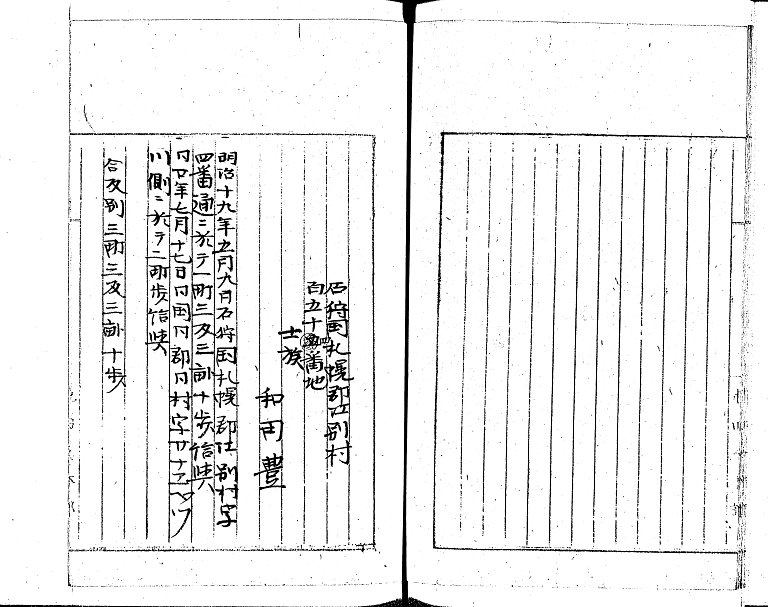 石狩国札幌郡江別村
百五十四番地
士族
和田豊
明治十九年五月九日石狩国札幌郡江別村字
四番通ニ於テ一町三反三畝十歩
同廿年七月十七日同国同郡同村字
川側ニ於テ二町歩
合反別三町三反三畝十歩